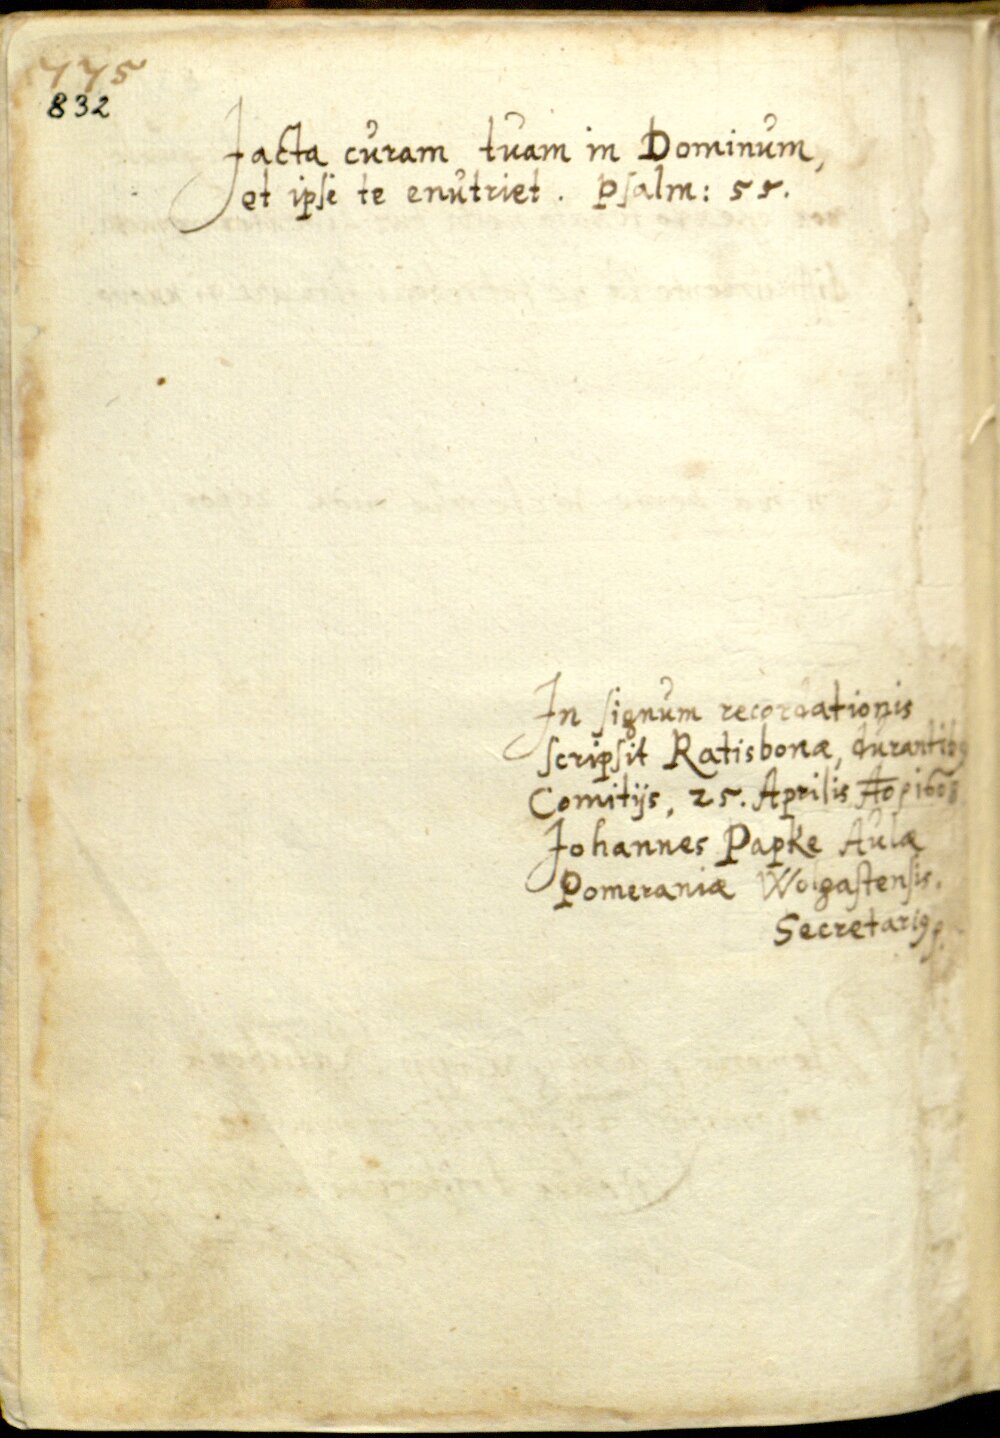 775
832
Jacta curam tuam in Dominum,
et ipſe te enutriet. Pſalm: 55.
In ſignum recordationis
ſcripſit Ratisbonæ, durantibꝰ
Comitijs, 25. Aprilis Ao 1608
Johannes Papke Aulæ
Pomeraniæ Wolgaſtenſis.
Secretariꝰ